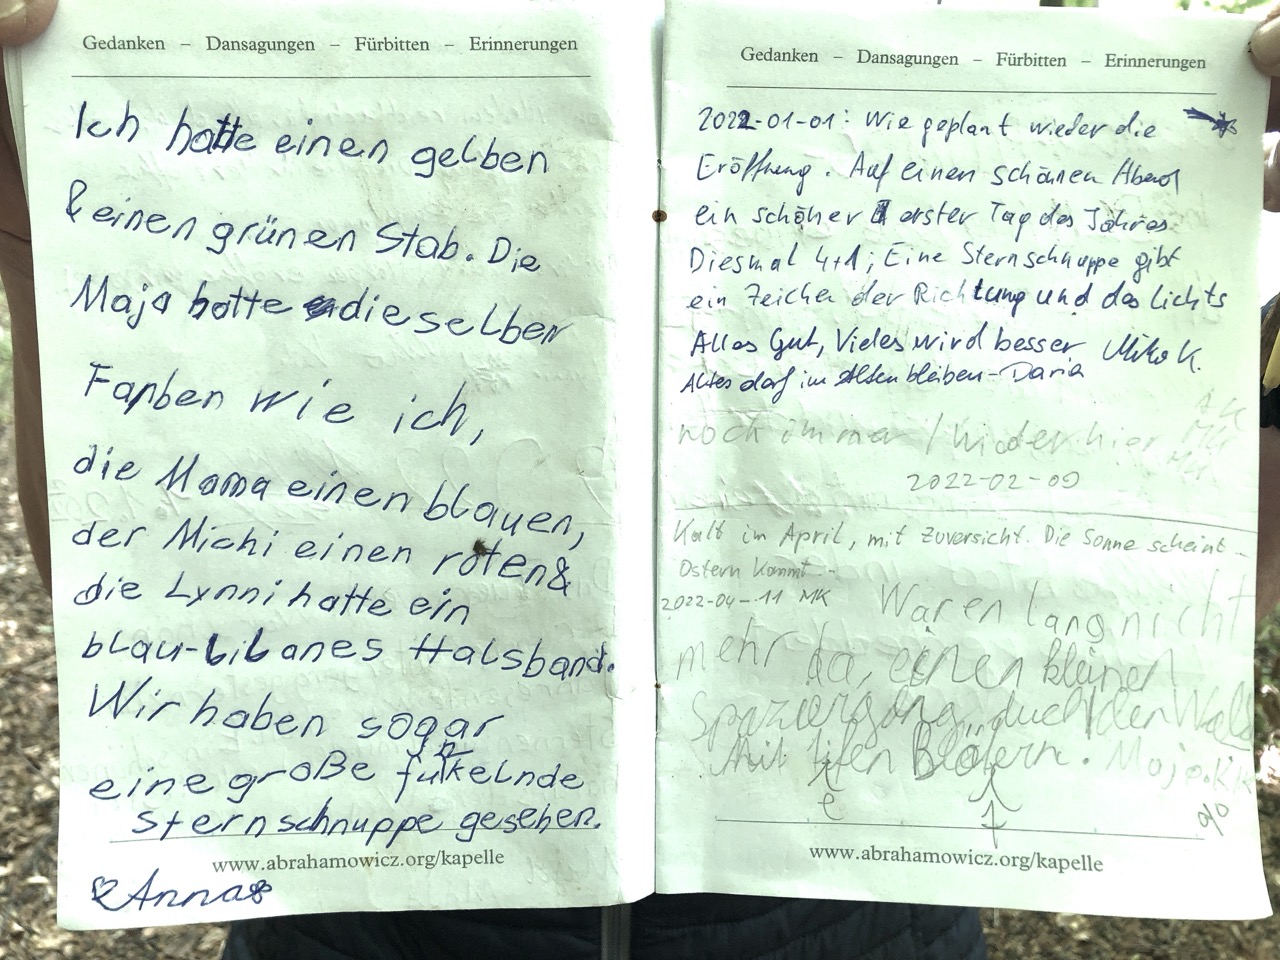 Gedanken – Dansagungen – Fürbitten – Erinnerungen
Ich hatte einen gelben
& einen grünen Stab. Die
Maja hatte dieselben
Farben wie ich,
die Mama einen blauen,
der Michi einen roten &
die Lynni hatte ein
blau-lilanes Halsband.
Wir haben sogar
eine große funkelnde
Sternschnuppe gesehen.
www.abrahamowicz.org/kapelle
Anna
Gedanken – Dansagungen – Fürbitten – Erinnerungen
2022-01-01: Wie geplant wieder die
Eröffnung. Auf einen schönen Abend
ein schöner erster Tag des Jahres
Diesmal 4+1; Eine Sternschnuppe gibt
ein Zeichen der Richtung und des Lichts
Alles Gut, Vieles wird besser K.
Altes darf im Alten bleiben - Daria
noch immer / wieder hier
2022-02-09
Kalt im April, mit Zuversicht. Die Sonne scheint -
Ostern kommt -
2022-04-11 MK
Waren lang nicht
mehr da, einen kleinen
Spaziergang, durch den Wald
mit Blätern. Maja.K
e
t
www.abrahamowicz.org/kapelle